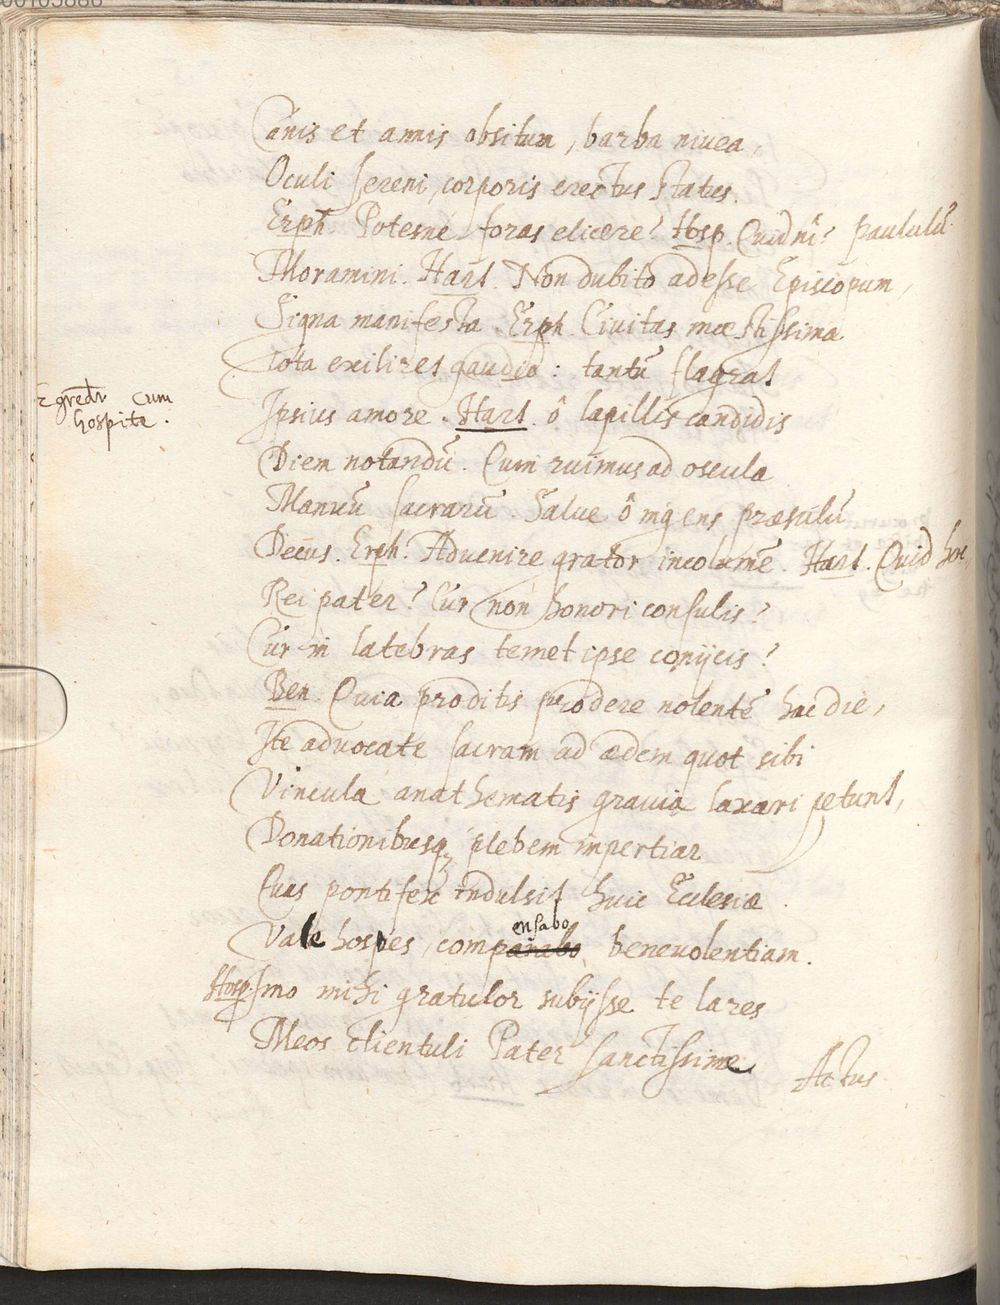 Canis et annis obsitum, barba nivea,
Oculi sereni, corporis erectus status.
Erph Potesne foras elicere? Hosp. Quid nî? paululū
Moramini. Hart. Non dubito adesse Episcopum,
Signa manifesta. Erph Civitas mœstissima
Tota exiliret gaudio: tantū flagrat
Egredr̄ cum
hospite.
Ipsius amore. Hart. ô lapillis candidis
Diem notandū. Cum ruimus ad oscula
Manuū sacrarū Salve ô ingens præsulū
Decus. Erph. Advenire grator incolumē. Hart. Quid hoc
Rei pater? Cur non honori consulis?
Cur in latebras temet ipse conijcis?
Ben. Quia proditis prodere nolentē hac die,
Ite advocate sacram ad ædem quot sibi
Vincula anathematis gravia laxari petunt,
Donationibusq; plebem impertiar
Quas pontifex indulsit huic Ecclesiæ.
ensabo
Vale hospes, compañabo benevolentiam.
Hosp. Imo mihi gratulor subijsse te lares
Meos clientuli Pater sanctissime
Actus